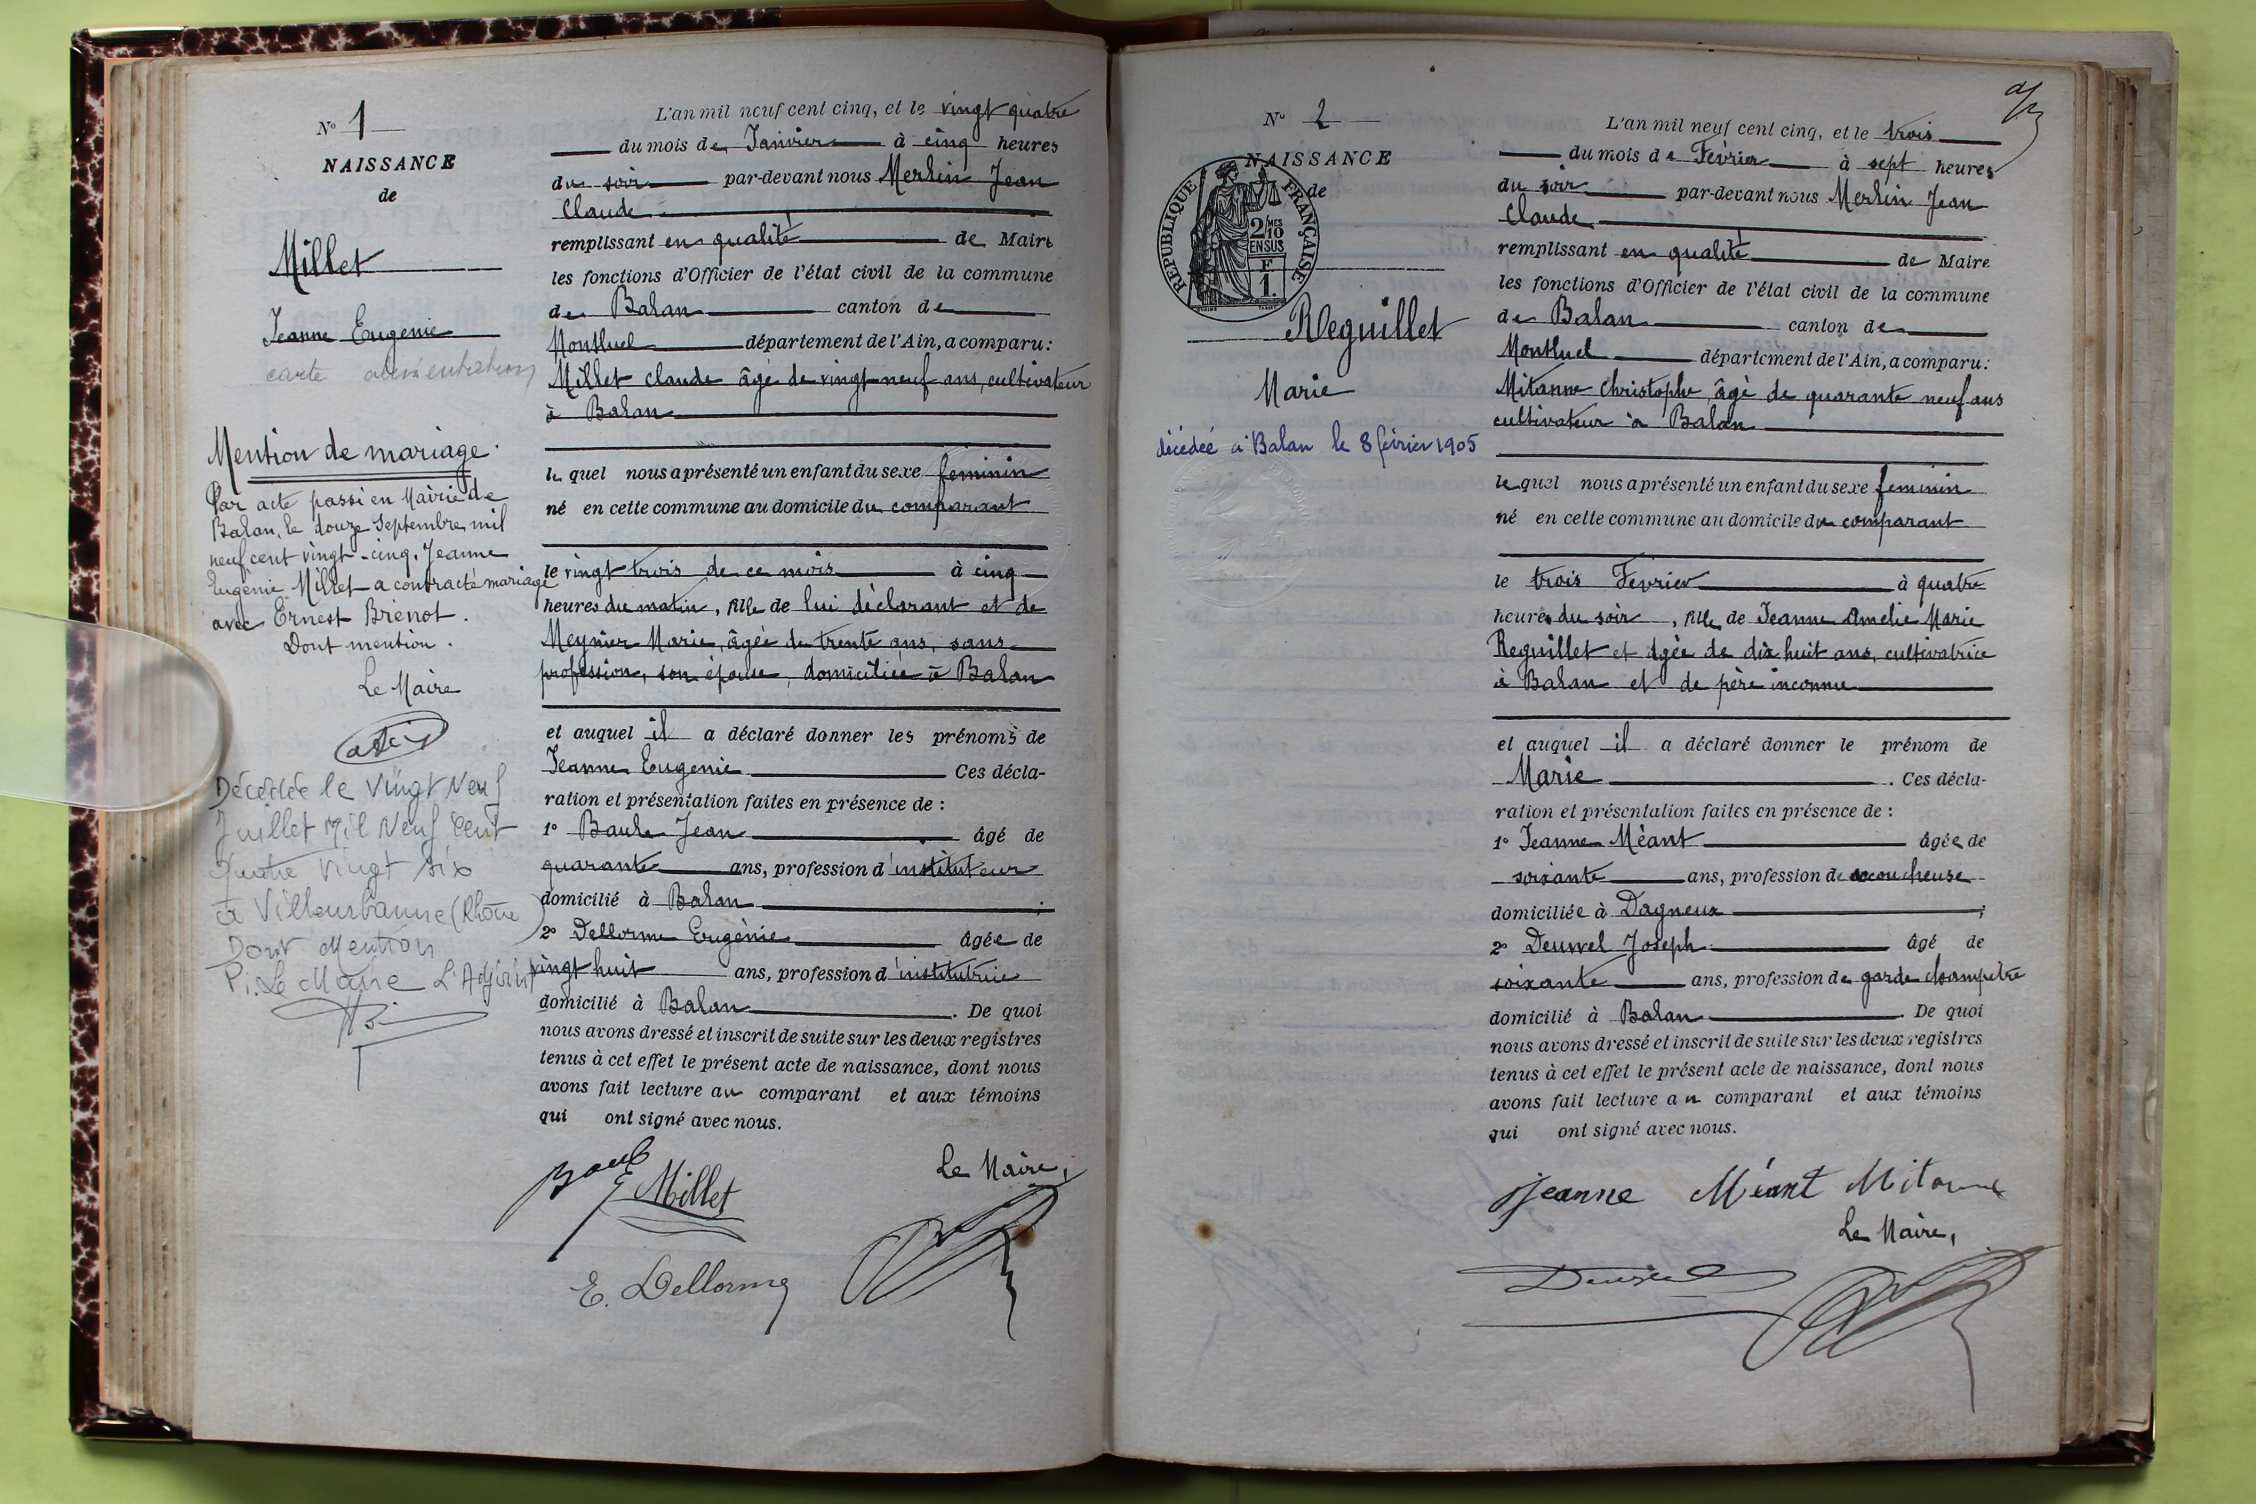 N° 1
NAISSANCE
de
Millet
Jeanne Eugenie
carte alimentation
Mention de mariage.
Par acte passé en Mairie de
Balan, le douze Septembre mil
neuf cent vingt-cinq, Jeanne
Eugenie Millet a contracté mariage
avec Ernest Brenot.
Dont mention.
Le Maire
Décédée le Vingt Neuf
Juillet Mil Neuf Cent
Quatre Vingt Six
à Villeurbanne (Rhône)
Dont Mention
P. Le Maire L'Adjoint
L'an mil neuf cent cinq, et le vingt quatre
du mois de Janvier à cinq heures
du soir par-devant nous Merlin Jean
Claude
remplissant en qualité de Maire
les fonctions d'Officier de l'état civil de la commune
de Balan canton de
Montluel département de l'Ain, a comparu:
Millet claude âgé de vingt neuf ans, cultivateur
à Balan
le quel nous a présenté un enfant du sexe feminin
né en cette commune au domicile du comparant
le vingt trois de ce mois à cinq
heures du matin, fille de lui déclarant et de
Meynier Marie, âgée de trente ans, sans
profession, son épouse, domiciliée à Balan
et auquel il a déclaré donner les prénoms de
Jeanne Eugenie Ces décla-
ration et présentation faites en présence de :
1° Baule Jean âgé de
quarante ans, profession d'instituteur
domicilié à Balan ;
2° Dellorme Eugénie âgée de
vingt huit ans, profession d'institutrice
domicilié à Balan. De quoi
nous avons dressé et inscrit de suite sur les deux registres
tenus à cet effet le présent acte de naissance, dont nous
avons fait lecture au comparant et aux témoins
qui ont signé avec nous.
Baule Millet
Le Maire,
E. Dellorme
N° 2
NAISSANCE
de
REPUBLIQUE FRANÇAISE
2/10
EN SUS
F
1.
Reguillet
Marie
décédée à Balan le 8 février 1905
L'an mil neuf cent cinq, et le trois
du mois de Février à sept heures
du soir par-devant nous Merlin Jean
Claude
remplissant en qualité de Maire
les fonctions d'Officier de l'état civil de la commune
de Balan canton de
Montluel département de l'Ain, a comparu:
Mitanne Christophe, âgé de quarante neuf ans
cultivateur à Balan
le quel nous a présenté un enfant du sexe feminin
né en cette commune au domicile du comparant
le trois Fevrier à quatre
heures du soir, fille de Jeanne Amelie Marie
Reguillet et âgée de dix huit ans, cultivatrice
à Balan et de père inconnu
et auquel il a déclaré donner le prénom de
Marie. Ces décla-
ration et présentation faites en présence de :
1° Jeanne Méant âgée de
soixante ans, profession de accoucheuse
domiciliée à Dagneux ;
2° Deuvrel Joseph âgé de
soixante ans, profession de garde champêtre
domicilié à Balan. De quoi
nous avons dressé et inscrit de suite sur les deux registres
tenus à cet effet le présent acte de naissance, dont nous
avons fait lecture au comparant et aux témoins
qui ont signé avec nous.
Jeanne Méant Mitanne
Le Maire,